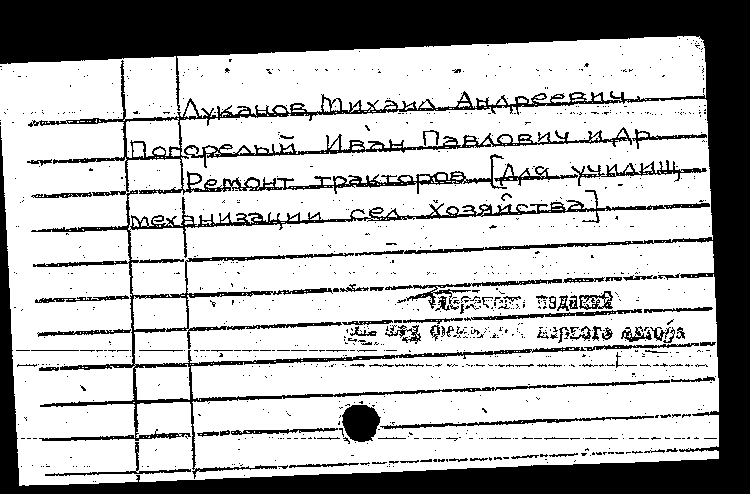 Луканов, Михаил Андреевич.
Погорелый Иван Павлович и др
Ремонт тракторов [Для училищ
механизации сел хозяйства]
Перечень изданий
под первого автора